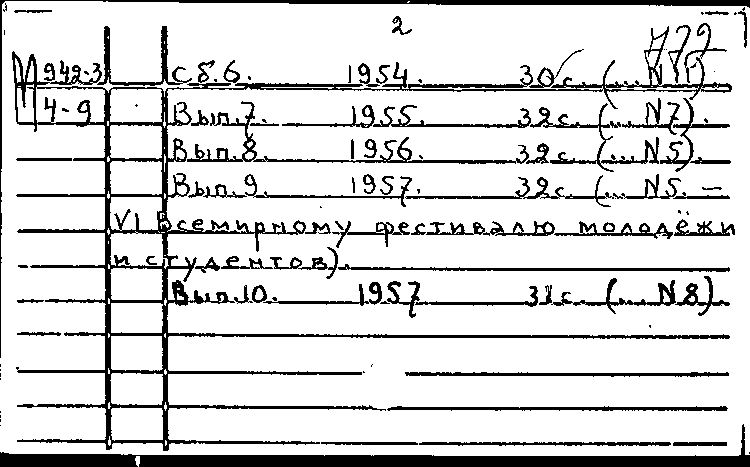 2
772
М 942.3 Сб.6. 1954. 30 с. (... N 11)
4-9 Вып.7. 1955. 32 с. (... N7).
Вып.8. 1956. 32 с. (... N5).
Вып.9. 1957. 32 с. (... N5. —
VI Всемирному фестивалю молодёжи
и студентов).
Вып.10. 1957 31 с. (... N8).